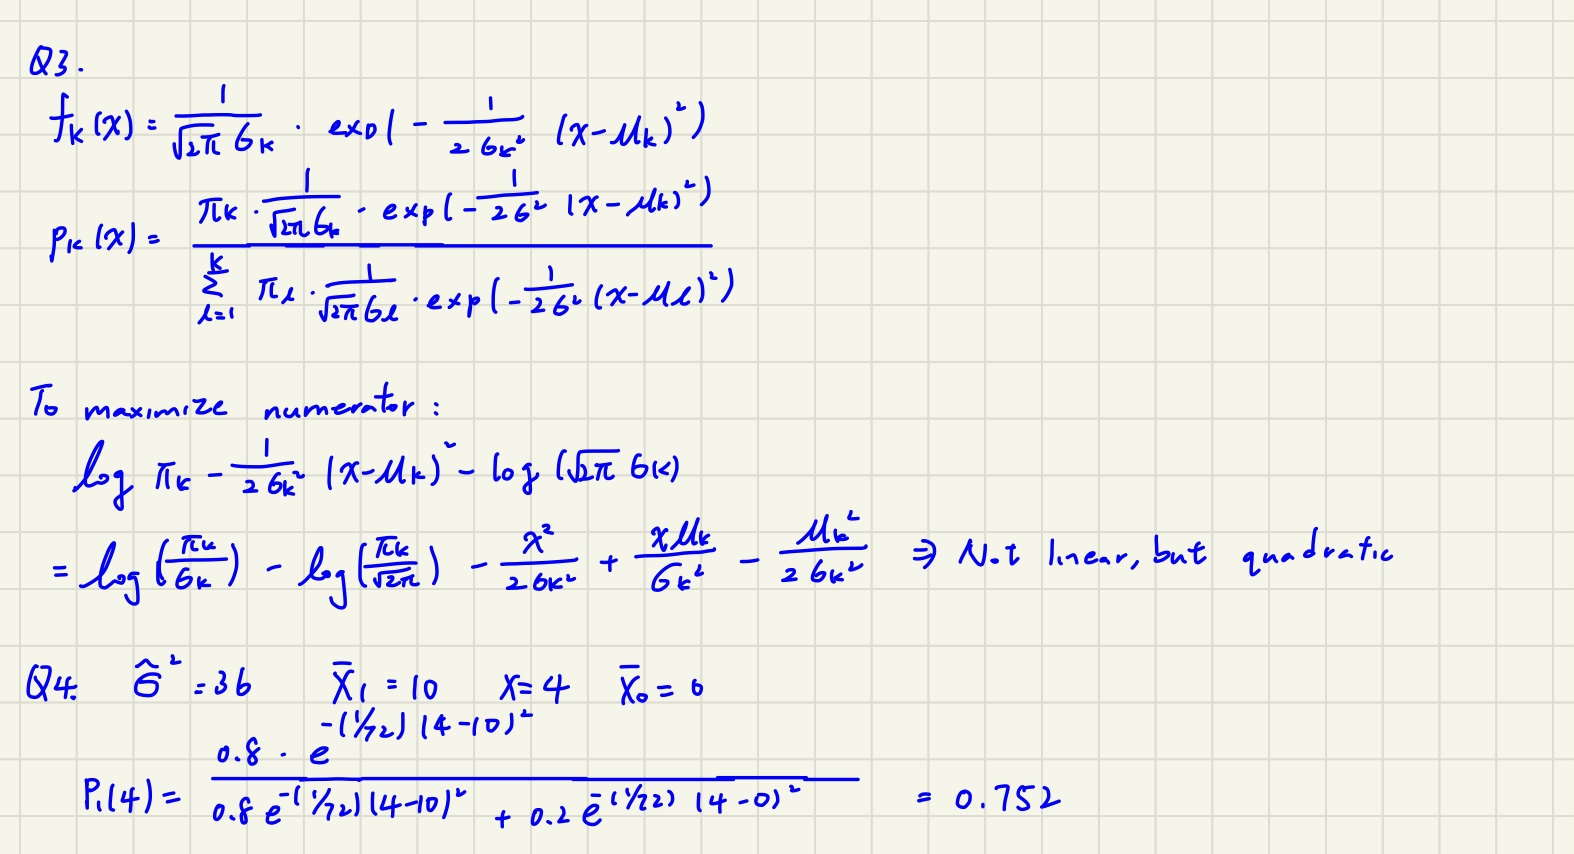 Q3.
f_k(x) = 1/(√2π σ_k) · exp(- 1/(2σ_k²) (x-μ_k)²)
p_k(x) = (π_k · 1/(√2π σ_k) · exp(- 1/(2σ²) (x-μ_k)²)) / (Σ_{l=1}^{K} π_l · 1/(√2π σ_l) · exp(- 1/(2σ²) (x-μ_l)²))
To maximize numerator:
log π_k - 1/(2σ_k²) (x-μ_k)² - log(√2π σ_k)
= log(π_k/σ_k) - log(π_k/√2π) - x²/(2σ_k²) + xμ_k/σ_k² - μ_k²/(2σ_k²) ⇒ Not linear, but quadratic
Q4. σ̂² = 36 X̄_1 = 10 X = 4 X̄_0 = 0
P_1(4) = (0.8 · e^{-(1/72)(4-10)²}) / (0.8 e^{-(1/72)(4-10)²} + 0.2 e^{-(1/72)(4-0)²}) = 0.752